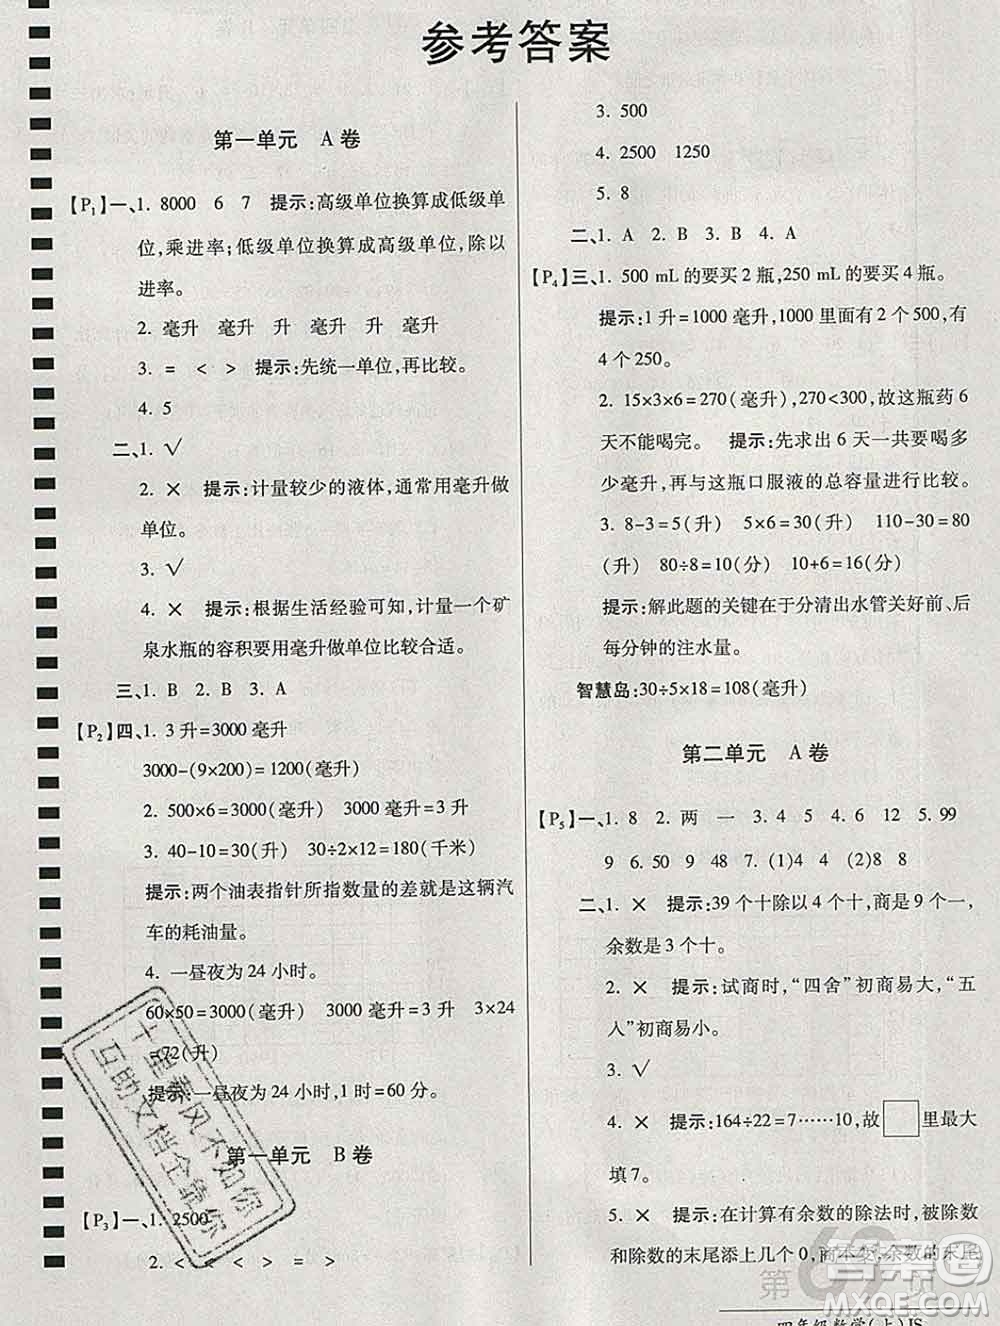 参考答案
第一单元 A卷
【P1】一、1. 8000 6 7 提示:高级单位换算成低级单
位,乘进率;低级单位换算成高级单位,除以
进率。
2. 毫升 毫升 升 毫升 升 毫升
3. = < > 提示:先统一单位,再比较。
4. 5
二、1. √
2. × 提示:计量较少的液体,通常用毫升做
单位。
3. √
4. × 提示:根据生活经验可知,计量一个矿
泉水瓶的容积要用毫升做单位比较合适。
三、1. B 2. B 3. A
【P2】四、1. 3升=3000毫升
3000-(9×200)=1200(毫升)
2. 500×6=3000(毫升) 3000毫升=3升
3. 40-10=30(升) 30÷2×12=180(千米)
提示:两个油表指针所指数量的差就是这辆汽
车的耗油量。
4. 一昼夜为24小时。
60×50=3000(毫升) 3000毫升=3升 3×24
=72(升)
提示:一昼夜为24小时,1时=60分。
第一单元 B卷
【P3】一、1. 2500
2. < < < > = >
3. 500
4. 2500 1250
5. 8
二、1. A 2. B 3. B 4. A
【P4】三、1. 500 mL的要买2瓶,250 mL的要买4瓶。
提示:1升=1000毫升,1000里面有2个500,有
4个250。
2. 15×3×6=270(毫升),270<300,故这瓶药6
天不能喝完。 提示:先求出6天一共要喝多
少毫升,再与这瓶口服液的总容量进行比较。
3. 8-3=5(升) 5×6=30(升) 110-30=80
(升) 80÷8=10(分) 10+6=16(分)
提示:解此题的关键在于分清出水管关好前、后
每分钟的注水量。
智慧岛:30÷5×18=108(毫升)
第二单元 A卷
【P5】一、1. 8 2. 两 一 3. 4 5 4. 6 12 5. 99
9 6. 50 9 48 7. (1)4 (2)8 8
二、1. × 提示:39个十除以4个十,商是9个一,
余数是3个十。
2. × 提示:试商时,“四舍”初商易大,“五
入”初商易小。
3. √
4. × 提示:164÷22=7……10,故□里最大
填7。
5. × 提示:在计算有余数的除法时,被除数
和除数的末尾添上几个0,商不变,余数的末尾
十里春风不如你
互助文档全靠你
答案圈
MXQE.COM
四年级数学(上)JS